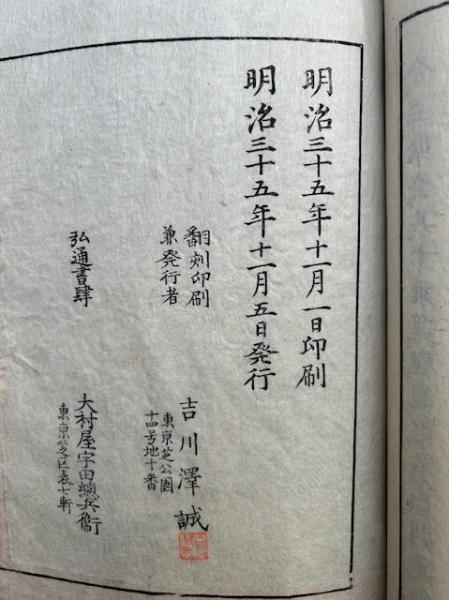 明治三十五年十一月一日印刷
明治三十五年十一月五日発行
翻刻印刷
兼発行者
東京芝公園
十四号地十番
吉川澤誠
弘通書肆
大村屋宇田總兵衞
東京芝区表七軒